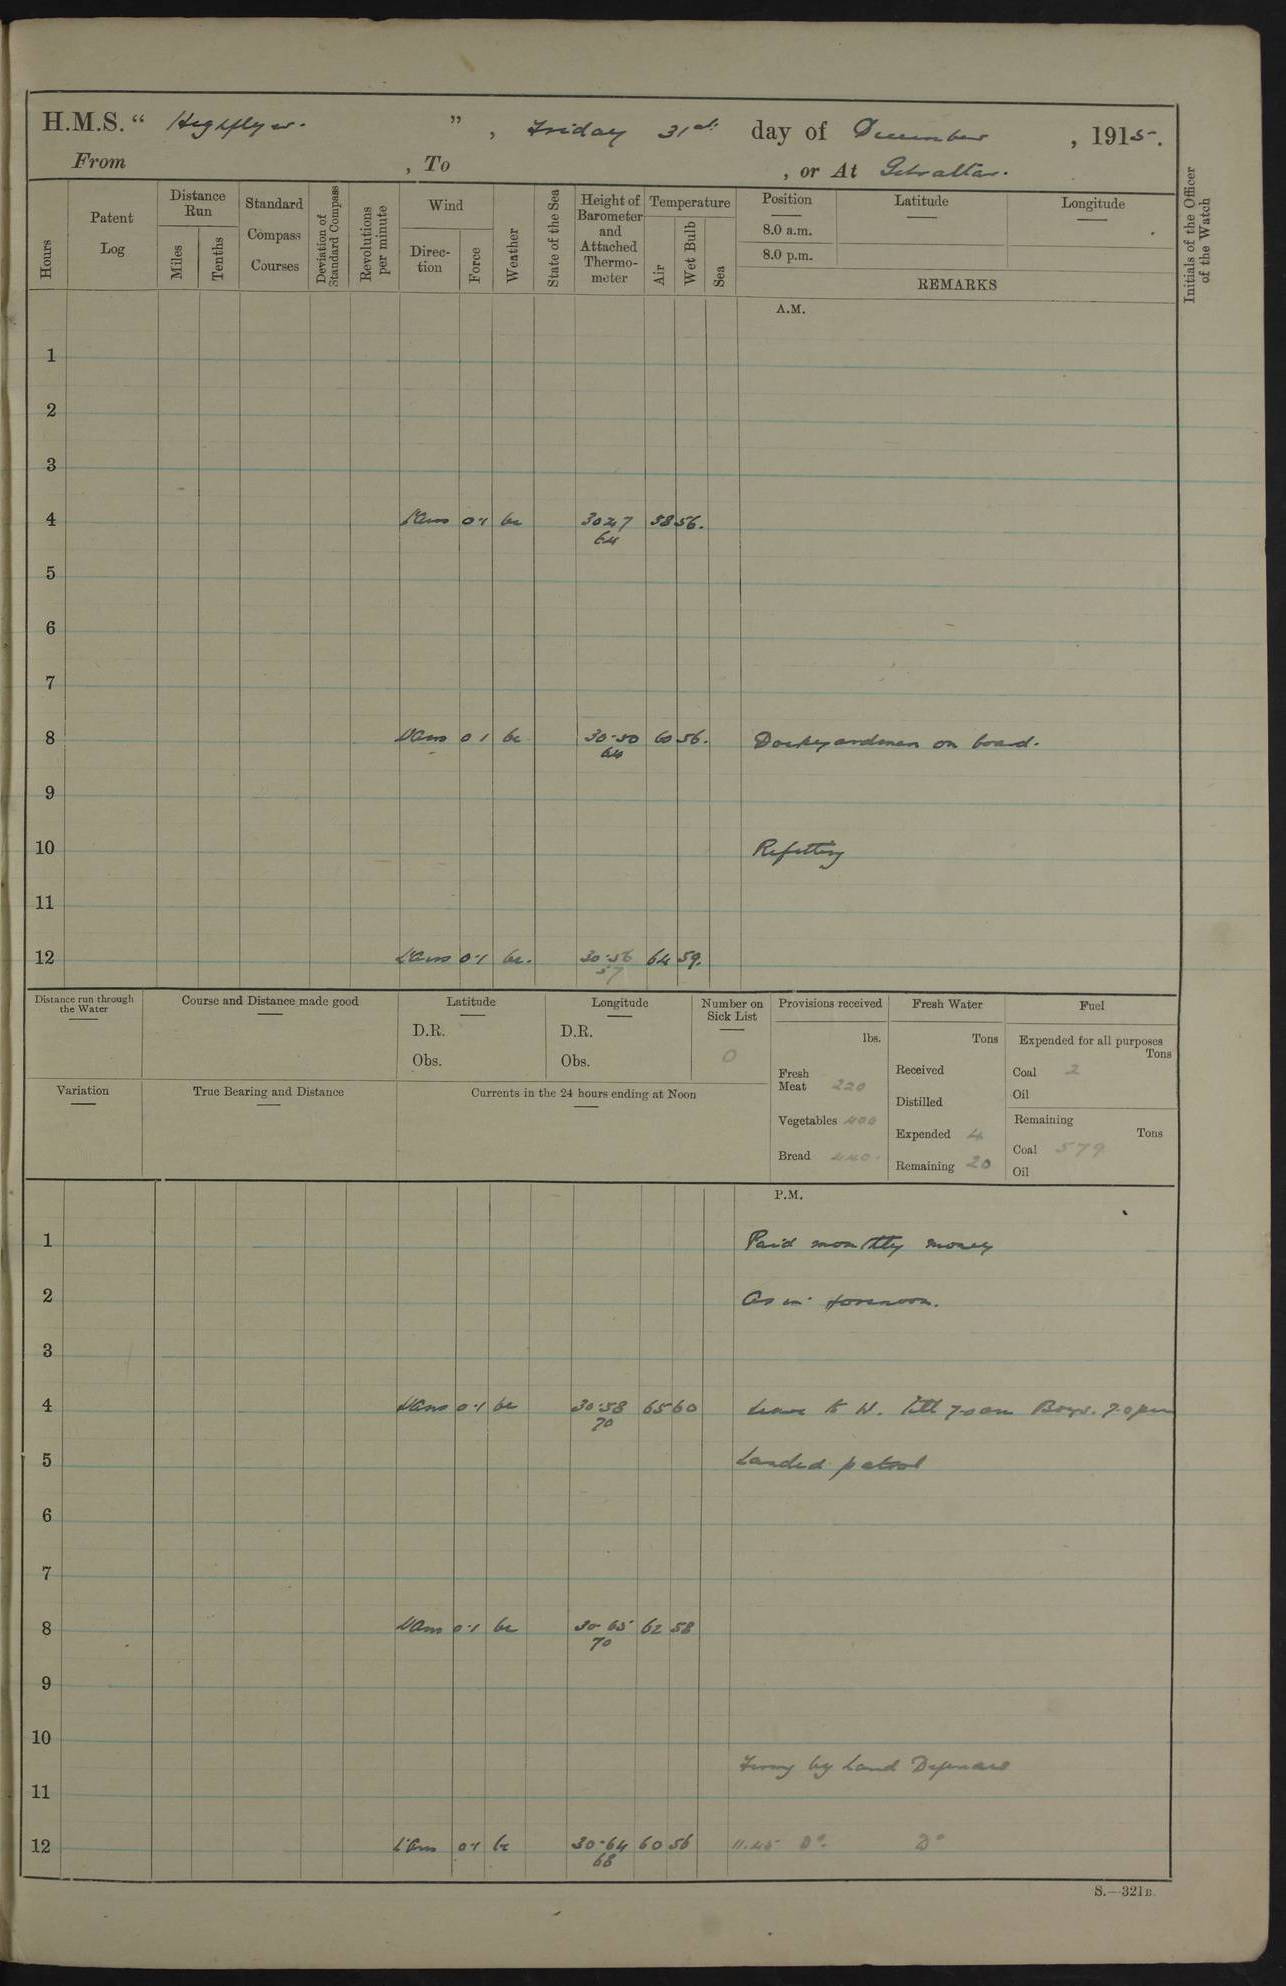 H.M.S. " Highflyer. " , Friday 31st day of December , 1915.
From , To , or At Gibraltar.
Hours
Patent Log
Distance Run
Miles
Tenths
Standard Compass Courses
Deviation of Standard Compass
Revolutions per minute
Wind
Direction
Force
Weather
State of the Sea
Height of Barometer and Attached Thermometer
Temperature
Air
Wet Bulb
Sea
Position
8.0 a.m.
8.0 p.m.
Latitude
Longitude
REMARKS
Initials of the Officer of the Watch
A.M.
1
2
3
4 0·1 bc 30 47 58 56.
64
5
6
7
8 0 1 bc 30·50 60 56. Dockyardmen on board.
64
9
10 Refitting
11
12 0·1 bc. 30·56 64 59.
57
Distance run through the Water
Course and Distance made good
Latitude
D.R.
Obs.
Longitude
D.R.
Obs.
Number on Sick List
0
Provisions received
lbs.
Fresh Meat 220
Vegetables 400
Bread 440.
Fresh Water
Tons
Received
Distilled
Expended 4
Remaining 20
Fuel
Expended for all purposes
Tons
Coal 2
Oil
Remaining
Tons
Coal 579
Oil
Variation
True Bearing and Distance
Currents in the 24 hours ending at Noon
P.M.
1 Paid monthly money
2 As in forenoon.
3
4 0·1 bc 30·58 65 60 Leave to W. till 7.0 am Boys. 7.0 pm
70
5 Landed patrol
6
7
8 0·1 bc 30·65 62 58
70
9
10
Firing by Land Defences
11
12 0·1 bc 30·64 60 56 11.45 Do. Do
68
S.—321B.